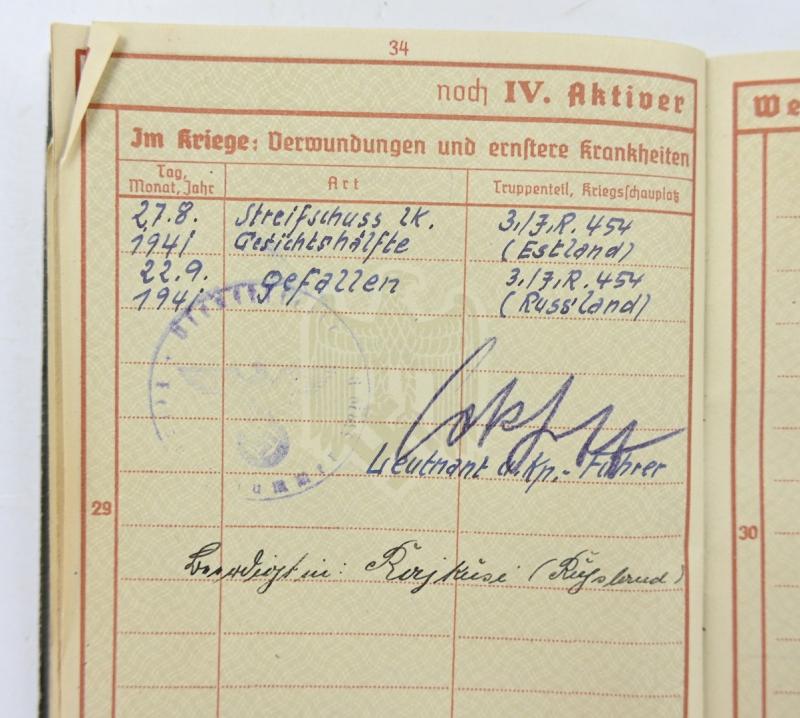 34
noch IV. Aktiver
We
Im Kriege: Verwundungen und ernstere Krankheiten
Tag, Monat, Jahr
Art
Truppenteil, Kriegsschauplatz
27.8. Streifschuss lk. 3./J.R. 454
1941 Gesichtshälfte (Estland)
22.9. gefallen 3./J.R. 454
1941 (Russland)
Leutnant u. Kp.-Führer
29
30
Beerdigt in: (Rußland)